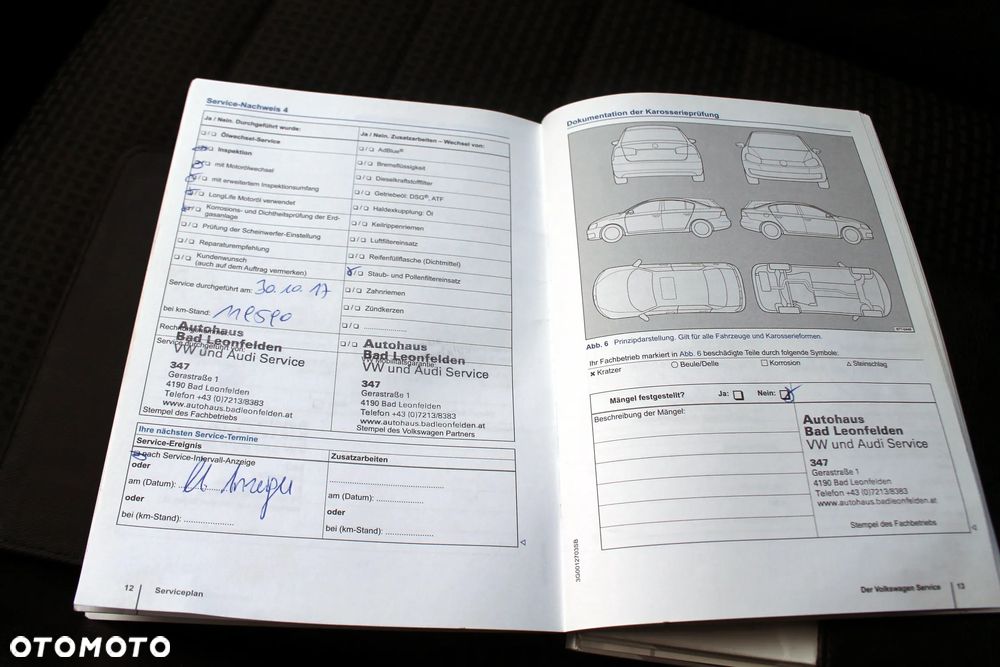 Service-Nachweis 4
Ja / Nein. Durchgeführt wurde:
❑ / ❑ Ölwechsel-Service
❑ Inspektion
❑ mit Motorölwechsel
❑ mit erweitertem Inspektionsumfang
❑ LongLife Motoröl verwendet
❑ Korrosions- und Dichtheitsprüfung der Erd-
gasanlage
❑ / ❑ Prüfung der Scheinwerfer-Einstellung
❑ / ❑ Reparaturempfehlung
❑ / ❑ Kundenwunsch
(auch auf dem Auftrag vermerken)
Service durchgeführt am: 30.10.17
bei km-Stand:
Service durchgeführt von:
Autohaus
Bad Leonfelden
VW und Audi Service
347
Gerastraße 1
4190 Bad Leonfelden
Telefon +43 (0)7213/8383
www.autohaus.badleonfelden.at
Stempel des Fachbetriebs
Ja / Nein. Zusatzarbeiten – Wechsel von:
❑ / ❑ AdBlue®
❑ / ❑ Bremsflüssigkeit
❑ / ❑ Dieselkraftstofffilter
❑ / ❑ Getriebeöl: DSG®, ATF
❑ / ❑ Haldexkupplung: Öl
❑ / ❑ Keilrippenriemen
❑ / ❑ Luftfiltereinsatz
❑ / ❑ Reifenfüllflasche (Dichtmittel)
/ ❑ Staub- und Pollenfiltereinsatz
❑ / ❑ Zahnriemen
❑ / ❑ Zündkerzen
❑ / ❑ ....................
❑ / ❑
Autohaus
Bad Leonfelden
VW Mobilitätsgarantie
VW und Audi Service
347
Gerastraße 1
4190 Bad Leonfelden
Telefon +43 (0)7213/8383
www.autohaus.badleonfelden.at
Stempel des Volkswagen Partners
Ihre nächsten Service-Termine
Service-Ereignis
nach Service-Intervall-Anzeige
oder
am (Datum):
lt. Anzeige
oder
bei (km-Stand): ....................
Zusatzarbeiten
am (Datum): ....................
oder
bei (km-Stand): ....................
12 Serviceplan
Dokumentation der Karosserieprüfung
Abb. 6 Prinzipdarstellung. Gilt für alle Fahrzeuge und Karosserieformen.
Ihr Fachbetrieb markiert in Abb. 6 beschädigte Teile durch folgende Symbole:
× Kratzer ○ Beule/Delle □ Korrosion △ Steinschlag
Mängel festgestellt? Ja: ❑ Nein: ❑
Beschreibung der Mängel:
Autohaus
Bad Leonfelden
VW und Audi Service
347
Gerastraße 1
4190 Bad Leonfelden
Telefon +43 (0)7213/8383
www.autohaus.badleonfelden.at
Stempel des Fachbetriebs
3G0012703SB
Der Volkswagen Service 13
OTOMOTO